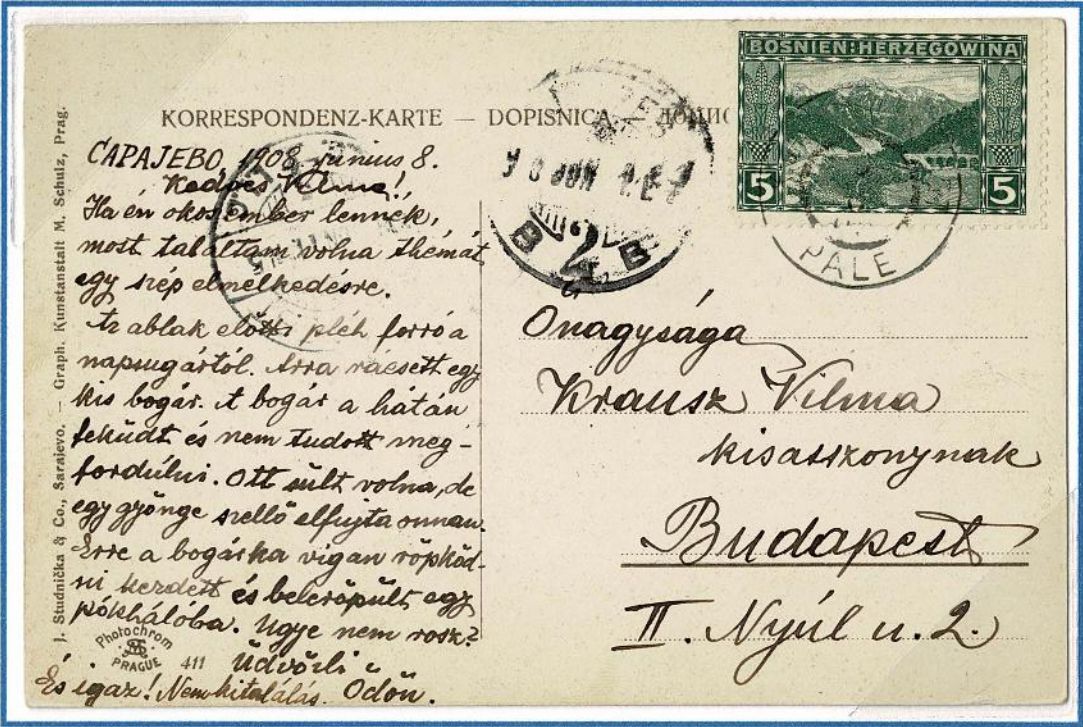 BOSNIEN-HERZEGOWINA
5 5
KORRESPONDENZ-KARTE — DOPISNICA —
PALE
J. Studnička & Co., Sarajevo. — Graph. Kunstanstalt M. Schulz, Prag.
САРАЈЕВО, 1908 junius 8.
Kedves Vilma!
Ha én okos ember lennék,
most találtam volna thémát
egy szép elmélkedésre.
Az ablak előtti pléh forró a
napsugártól. Arra ráesett egy
kis bogár. A bogár a hátán
feküdt és nem tudott meg-
fordúlni. Ott sült volna, de
egy gyönge szellő elfujta onnan.
Erre a bogárka vigan röpköd-
ni kezdett és beleröpült egy
pókhálóba. Ugye nem rossz?
Üdvözli
És igaz! Nem kitalálás. Ödön.
Photochrom
PRAGUE 411
Onagysága
Krausz Vilma
kisasszonynak
Budapest
II. Nyúl u. 2.